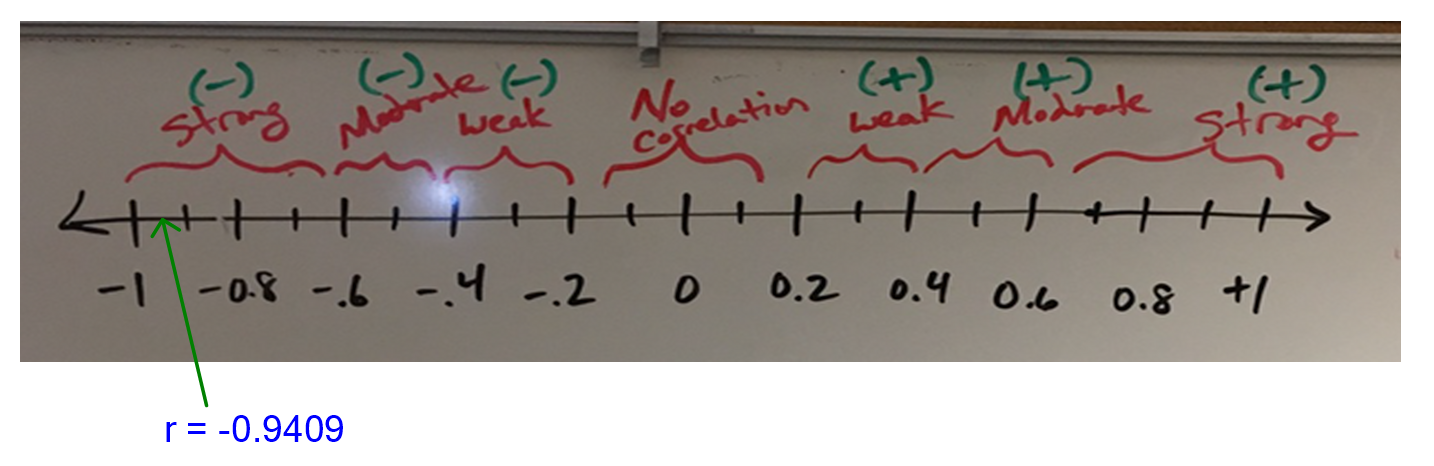 (-) (-) (-) (+) (+) (+)
Strong Moderate weak No correlation weak Modrate Strong
-1 -0.8 -.6 -.4 -.2 0 0.2 0.4 0.6 0.8 +1
r = -0.9409